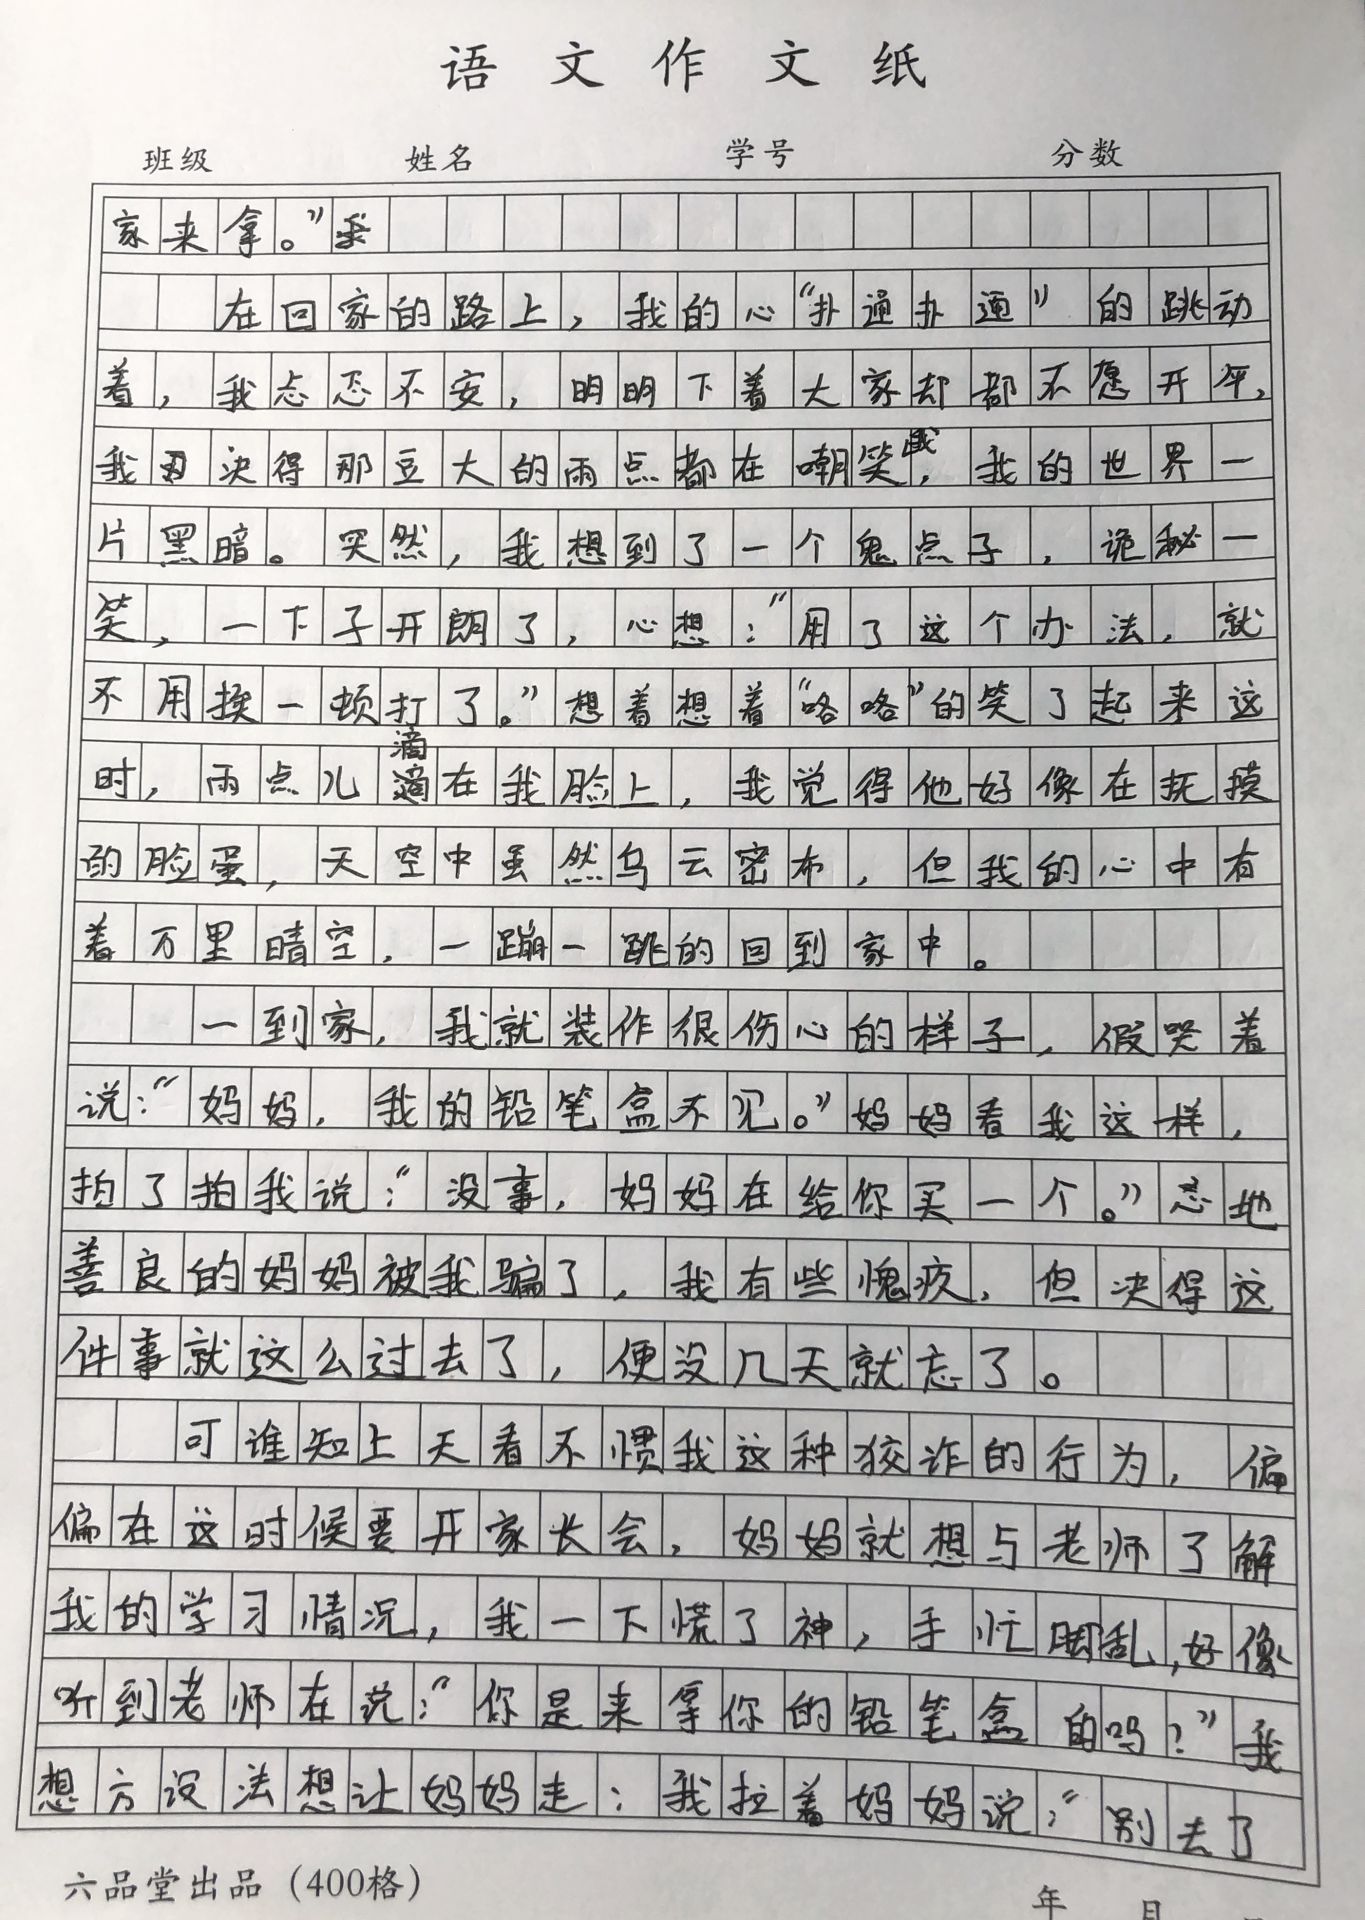 语文作文纸
班级 姓名 学号 分数
家来拿。”
在回家的路上，我的心“扑通扑通”的跳动
着，我忐忑不安，明明下着大家却都不愿开伞，
我决得那豆大的雨点都在嘲笑我，我的世界一
片黑暗。突然，我想到了一个鬼点子，诡秘一
笑，一下子开朗了，心想：“用了这个办法，就
不用挨一顿打了。”想着想着“咯咯”的笑了起来这
时，雨点儿滴在我脸上，我觉得他好像在抚摸
的脸蛋，天空中虽然乌云密布，但我的心中有
着万里晴空，一蹦一跳的回到家中。
一到家，我就装作很伤心的样子，假哭着
说：“妈妈，我的铅笔盒不见。”妈妈看我这样，
拍了拍我说：“没事，妈妈在给你买一个。”忑地
善良的妈妈被我骗了，我有些愧疚，但决得这
件事就这么过去了，便没几天就忘了。
可谁知上天看不惯我这种狡诈的行为，偏
偏在这时候要开家长会，妈妈就想与老师了解
我的学习情况，我一下慌了神，手忙脚乱，好像
听到老师在说：“你是来拿你的铅笔盒的吗？”我
想方设法想让妈妈走：我拉着妈妈说：“别去了
六品堂出品（400格）
年 月